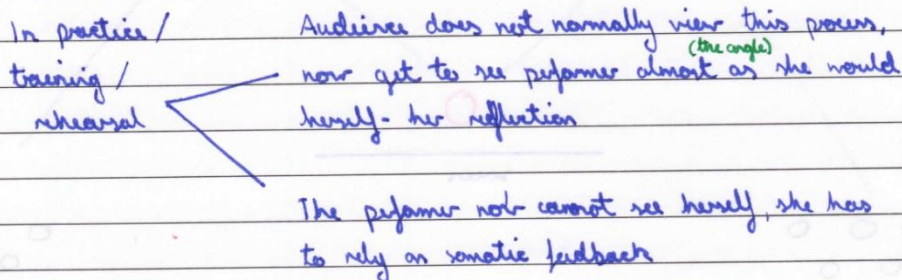 In practice /
training /
rehearsal
Audience does not normally view this process,
(the angle)
now get to see performer almost as she would
herself - her reflection
The performer now cannot see herself, she has
to rely on somatic feedback